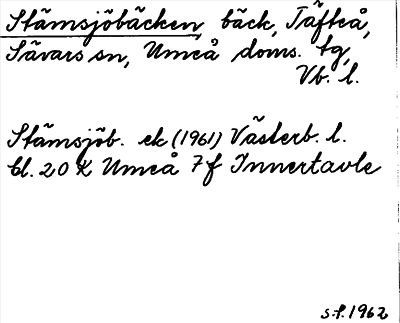 Stämsjöbäcken bäck, Täfteå,
Sävars sn, Umeå doms. tg,
Vb. l.
Stämsjöb. ek (1961) Västerb. l.
bl. 20 K Umeå 7f Innertavle
s.f. 1962